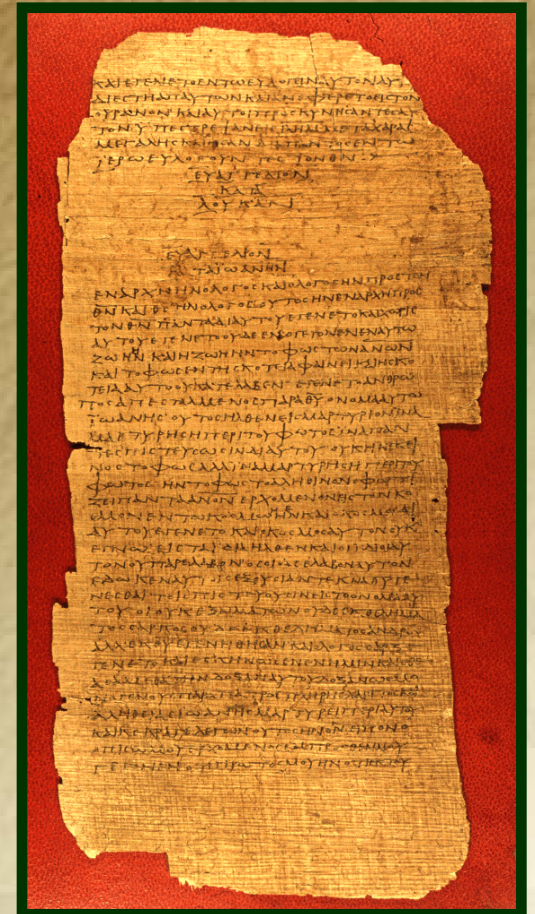 ΚΑΙ ΕΓΕΝΕΤΟ ΕΝ ΤΩ ΕΥΛΟΓΕΙΝ ΑΥΤΟΝ
ΔΙΕϹΤΗ ΑΠ ΑΥΤΩΝ ΚΑΙ ΑΝΕΦΕΡΕΤΟ ΕΙϹ ΤΟΝ
ΟΥΡΑΝΟΝ ΚΑΙ ΑΥΤΟΙ ΠΡΟϹΚΥΝΗϹΑΝΤΕϹ ΑΥ
ΤΟΝ ΥΠΕϹΤΡΕΨΑΝ ΜΕΤΑ ΧΑΡΑϹ
ΜΕΓΑΛΗϹ ΚΑΙ ΗϹΑΝ ΕΝ ΤΩ
ΙΕΡΩ ΕΥΛΟΓΟΥΝΤΕϹ ΤΟΝ ΘΝ
ΕΥΑΓΓΕΛΙΟΝ
ΚΑΤΑ
ΛΟΥΚΑΝ
ΕΥΑΓΓΕΛΙΟΝ
ΚΑΤΑ ΙΩΑΝΗΝ
ΕΝ ΑΡΧΗ ΗΝ Ο ΛΟΓΟϹ ΚΑΙ Ο ΛΟΓΟϹ ΗΝ ΠΡΟϹ ΤΟΝ
ΘΝ ΚΑΙ ΘϹ ΗΝ Ο ΛΟΓΟϹ ΟΥΤΟϹ ΗΝ ΕΝ ΑΡΧΗ ΠΡΟϹ
ΤΟΝ ΘΝ ΠΑΝΤΑ ΔΙ ΑΥΤΟΥ ΕΓΕΝΕΤΟ ΚΑΙ ΧΩΡΙϹ
ΑΥΤΟΥ ΕΓΕΝΕΤΟ ΟΥΔΕ ΕΝ Ο ΓΕΓΟΝΕΝ ΕΝ ΑΥΤΩ
ΖΩΗ ΗΝ ΚΑΙ Η ΖΩΗ ΗΝ ΤΟ ΦΩϹ ΤΩΝ ΑΝΩΝ
ΚΑΙ ΤΟ ΦΩϹ ΕΝ ΤΗ ϹΚΟΤΕΙΑ ΦΑΙΝΕΙ ΚΑΙ Η ϹΚΟ
ΤΕΙΑ ΑΥΤΟ ΟΥ ΚΑΤΕΛΑΒΕΝ ΕΓΕΝΕΤΟ ΑΝΘΡΩ
ΠΟϹ ΑΠΕϹΤΑΛΜΕΝΟϹ ΠΑΡΑ ΘΥ ΟΝΟΜΑ ΑΥΤΩ
ΙΩΑΝΗϹ ΟΥΤΟϹ ΗΛΘΕΝ ΕΙϹ ΜΑΡΤΥΡΙΟΝ ΙΝΑ
ΜΑΡΤΥΡΗϹΗ ΠΕΡΙ ΤΟΥ ΦΩΤΟϹ ΙΝΑ ΠΑΝ
ΤΕϹ ΠΙϹΤΕΥϹΩϹΙΝ ΔΙ ΑΥΤΟΥ ΟΥΚ ΗΝ ΕΚΕΙ
ΝΟϹ ΤΟ ΦΩϹ ΑΛΛ ΙΝΑ ΜΑΡΤΥΡΗϹΗ ΠΕΡΙ ΤΟΥ
ΦΩΤΟϹ ΗΝ ΤΟ ΦΩϹ ΤΟ ΑΛΗΘΙΝΟΝ Ο ΦΩΤΙ
ΖΕΙ ΠΑΝΤΑ ΑΝΟΝ ΕΡΧΟΜΕΝΟΝ ΕΙϹ ΤΟΝ ΚΟ
ϹΜΟΝ ΕΝ ΤΩ ΚΟϹΜΩ ΗΝ ΚΑΙ Ο ΚΟϹΜΟϹ ΔΙ
ΑΥΤΟΥ ΕΓΕΝΕΤΟ ΚΑΙ Ο ΚΟϹΜΟϹ ΑΥΤΟΝ ΟΥΚ
ΕΓΝΩ ΕΙϹ ΤΑ ΙΔΙΑ ΗΛΘΕΝ ΚΑΙ ΟΙ ΙΔΙΟΙ ΑΥ
ΤΟΝ ΟΥ ΠΑΡΕΛΑΒΟΝ ΟϹΟΙ ΔΕ ΕΛΑΒΟΝ ΑΥΤΟΝ
ΕΔΩΚΕΝ ΑΥΤΟΙϹ ΕΞΟΥϹΙΑΝ ΤΕΚΝΑ ΘΥ ΓΕ
ΝΕϹΘΑΙ ΤΟΙϹ ΠΙϹΤΕΥΟΥϹΙΝ ΕΙϹ ΤΟ ΟΝΟΜΑ ΑΥ
ΤΟΥ ΟΙ ΟΥΚ ΕΞ ΑΙΜΑΤΩΝ ΟΥΔΕ ΕΚ ΘΕΛΗΜΑ
ΤΟϹ ϹΑΡΚΟϹ ΟΥΔΕ ΕΚ ΘΕΛΗΜΑΤΟϹ ΑΝΔΡΟϹ
ΑΛΛ ΕΚ ΘΥ ΕΓΕΝΗΘΗϹΑΝ ΚΑΙ Ο ΛΟΓΟϹ ϹΑΡΞ Ε
ΓΕΝΕΤΟ ΚΑΙ ΕϹΚΗΝΩϹΕΝ ΕΝ ΗΜΙΝ ΚΑΙ ΕΘΕ
ΑϹΑΜΕΘΑ ΤΗΝ ΔΟΞΑΝ ΑΥΤΟΥ ΔΟΞΑΝ ΩϹ ΜΟ
ΝΟΓΕΝΟΥϹ ΠΑΡΑ ΠΑΤΡΟϹ ΠΛΗΡΗϹ ΧΑΡΙΤΟϹ ΚΑΙ
ΑΛΗΘΕΙΑϹ ΙΩΑΝΗϹ ΜΑΡΤΥΡΕΙ ΠΕΡΙ ΑΥΤΟΥ
ΚΑΙ ΚΕΚΡΑΓΕΝ ΛΕΓΩΝ ΟΥΤΟϹ ΗΝ ΟΝ ΕΙΠΟΝ Ο
ΟΠΙϹΩ ΜΟΥ ΕΡΧΟΜΕΝΟϹ ΕΜΠΡΟϹΘΕΝ ΜΟΥ
ΓΕΓΟΝΕΝ ΟΤΙ ΠΡΩΤΟϹ ΜΟΥ ΗΝ ΟΤΙ ΕΚ ΤΟΥ